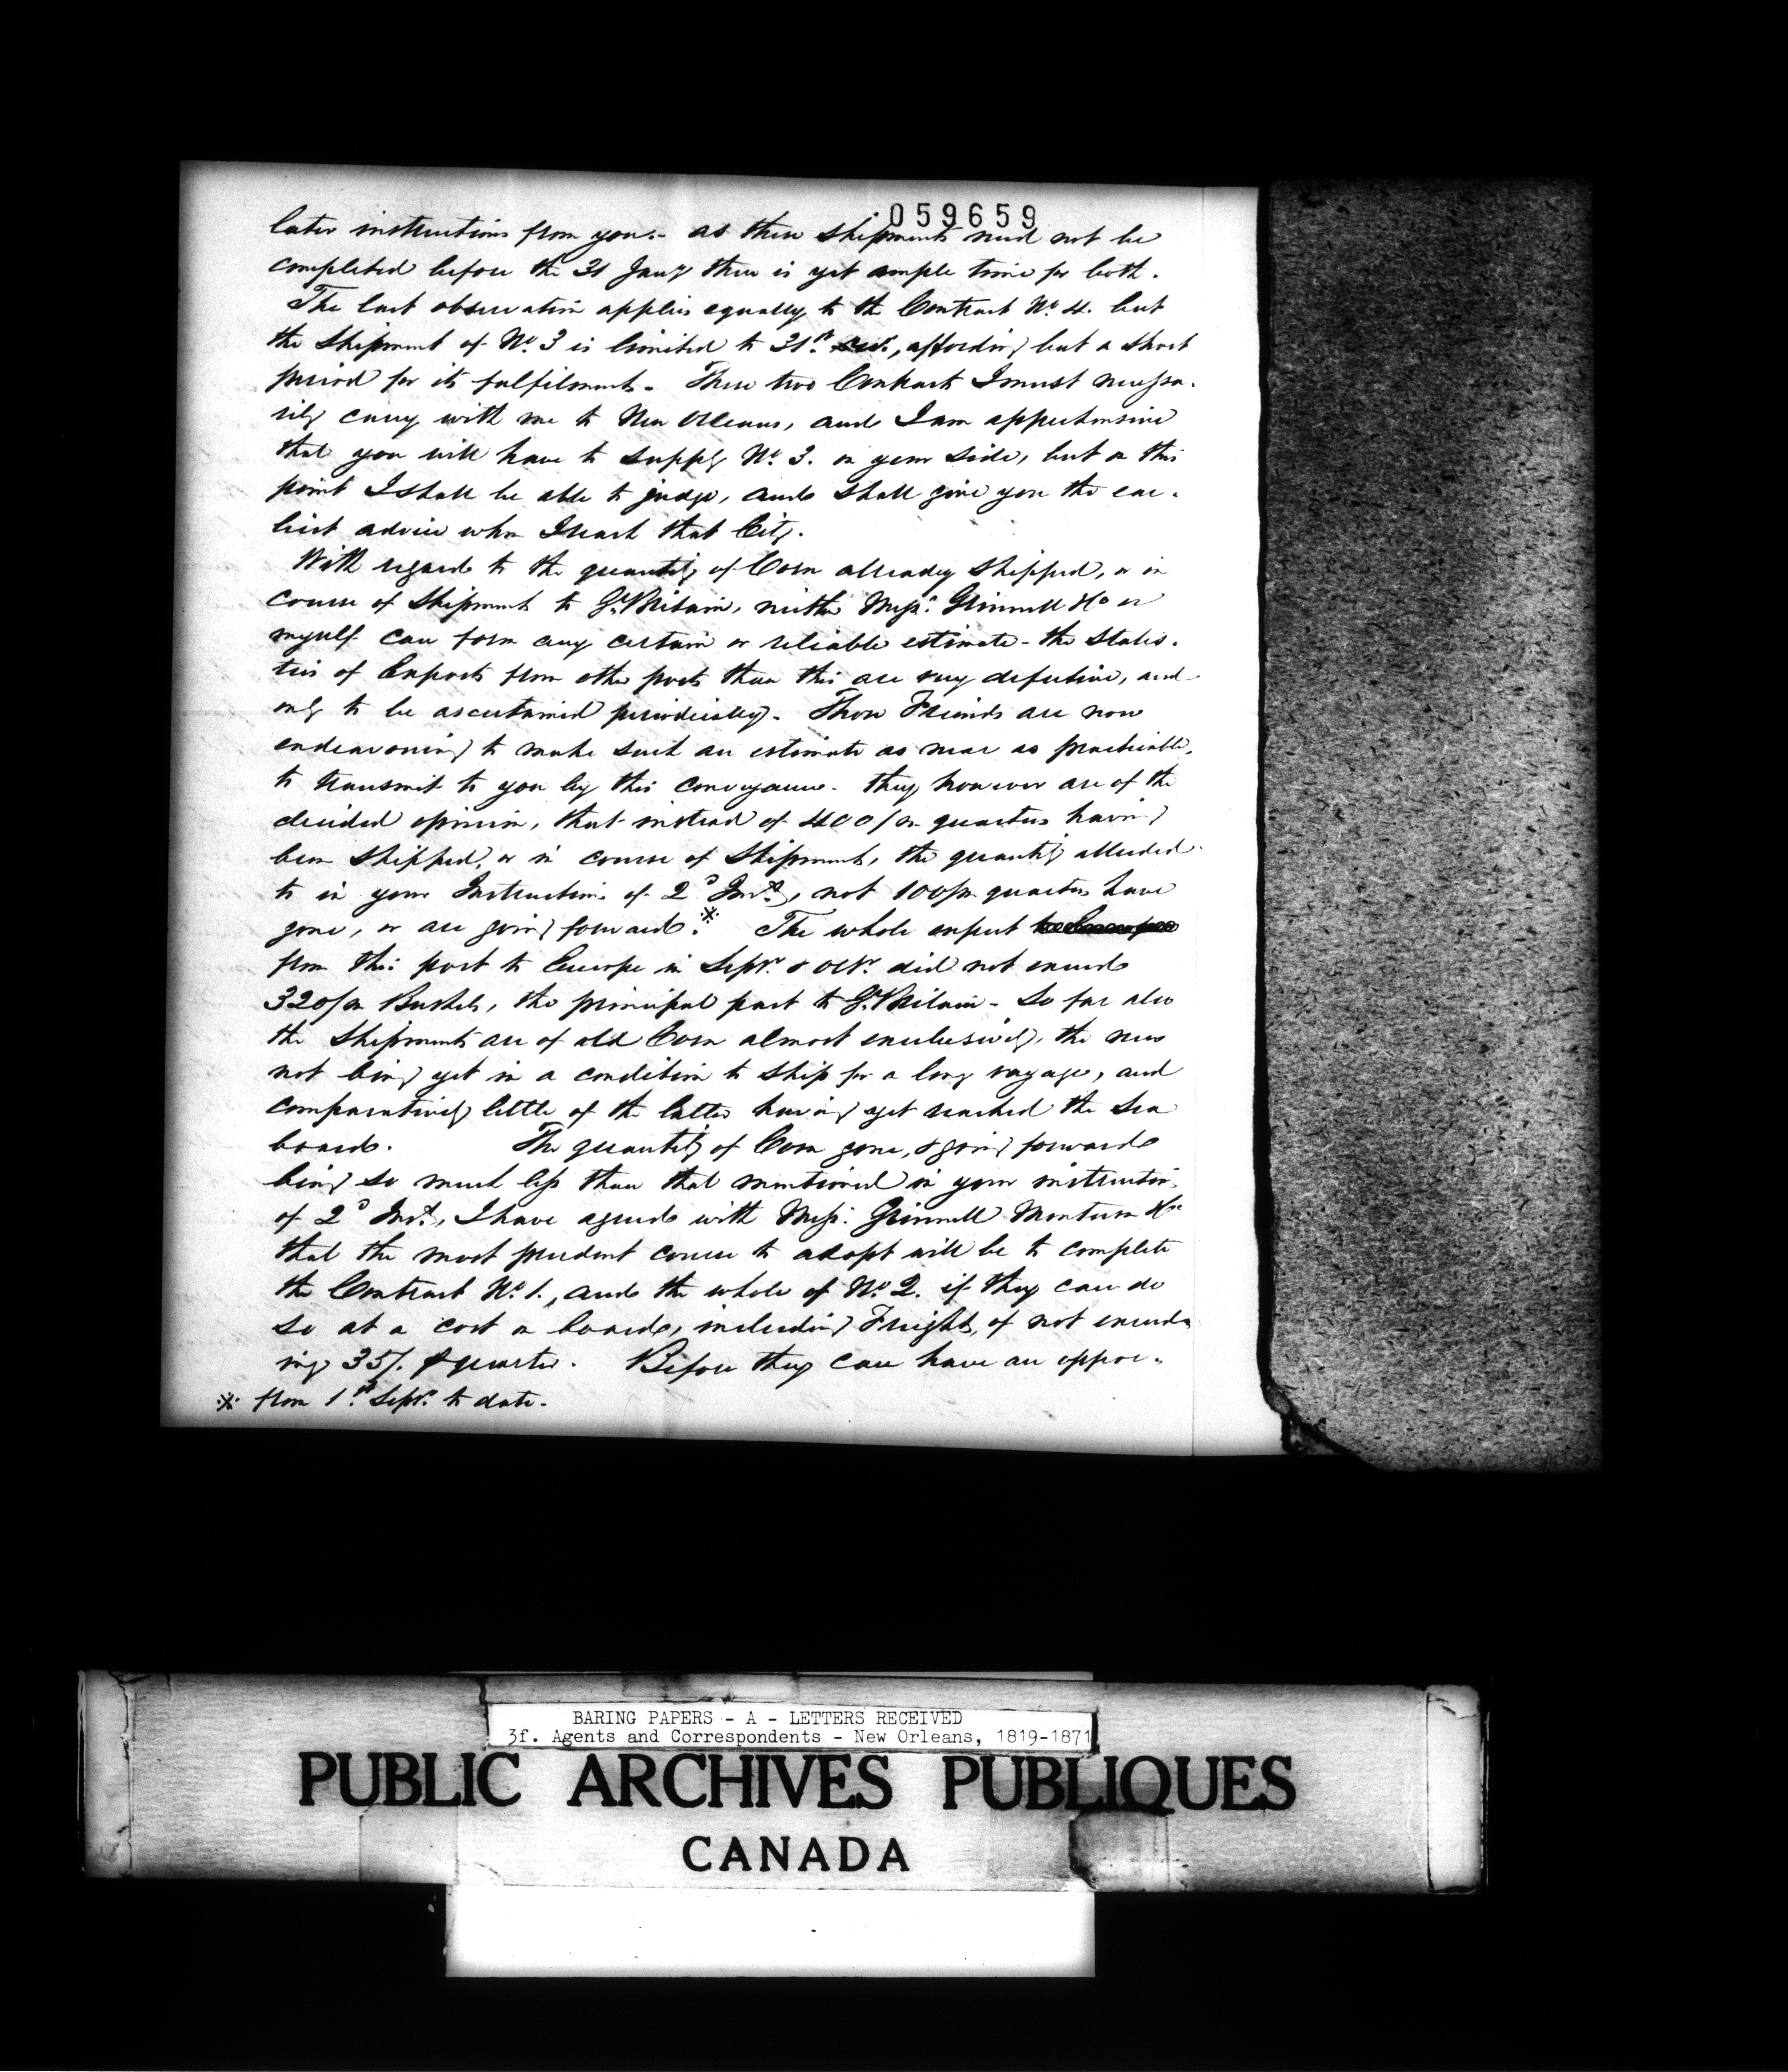 059659
later instructions from you. - as these shipments need not be
completed before the 31 Jany there is yet ample time for both.
The last observation applies equally to the Contract No. 4. but
the Shipment of No. 3 is limited to 31st. affording but a short
period for its fulfilment. - These two Contracts I must necessa-
rily carry with me to New Orleans, and I am apprehensive
that you will have to supply No. 3. on your side, but on this
point I shall be able to judge, and shall give you the ear-
liest advice when I reach that City.
With regard to the quantity of Corn already shipped, or in
course of shipment to Gt. Britain, neither Messrs. Grinnell &Co or
myself can form any certain or reliable estimate - the Statis-
tics of Exports from other ports than this are very defective, and
only to be ascertained periodically. - Those Friends are now
endeavouring to make such an estimate as near as practicable,
to transmit to you by this conveyance. they however are of the
decided opinion, that instead of 400/m quarters having
been shipped, or in course of shipment, the quantity alluded
to in your Instructions of 2d Inst., not 100/m quarters have
gone, or are going forward.※ The whole export to Europe
from this port to Europe in Sepr. & Octr. did not exceed
320/m Bushels, the principal part to Gt. Britain - So far also
the Shipments are of old Corn almost exclusively, the new
not being yet in a condition to ship for a long voyage, and
comparatively little of the latter having yet reached the Sea
board. The quantity of Corn gone, & going forward
being so much less than that mentioned in your instructions
of 2d Inst., I have agreed with Messrs. Grinnell Minturn &Co
that the most prudent course to adopt will be to complete
the Contract No. 1., and the whole of No. 2. if they can do
so at a cost on board, including Freight, of not exceed-
ing 35/. ⅌ quarter. Before they can have an oppor-
※ from 1st. Sepr. to date.
BARING PAPERS - A - LETTERS RECEIVED
3f. Agents and Correspondents - New Orleans, 1819-1871
PUBLIC ARCHIVES PUBLIQUES
CANADA